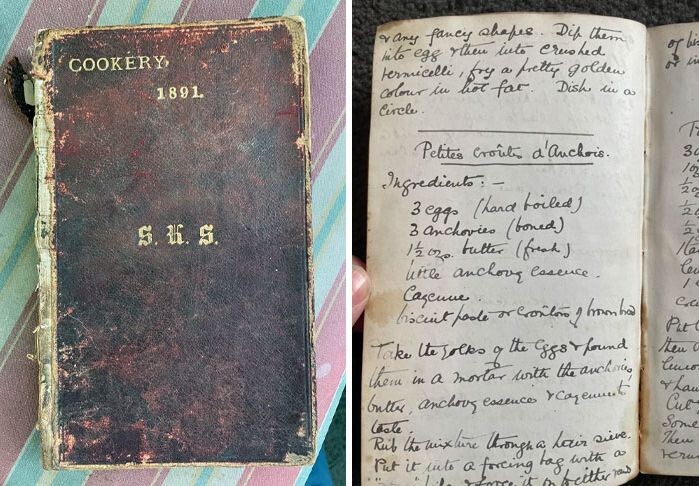 COOKERY,
1891.
S. K. S.
& any fancy shapes. Dip them
into egg & then into crushed
vermicelli, fry a pretty golden
colour in hot fat. Dish in a
circle.
Petites Croûtes d'Anchois.
Ingredients:-
3 eggs (hard boiled)
3 anchovies (boned)
1½ ozs. butter (fresh)
little anchovy essence.
Cayenne.
biscuit paste or croûtons of brown bread
Take the yolks of the eggs & pound
them in a mortar with the anchovies,
butter, anchovy essence & cayenne to
taste.
Rub the mixture through a hair sieve.
Put it into a forcing bag with a
& force it on to either
of
or in
3
½
½
2
1
Put
then
lemon
& han
Cut
Some
Then